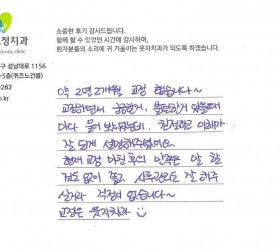 소중한 후기 감사드립니다.
함께 할 수 있었던 시간에 감사하며,
환자분들의 소리에 귀 기울이는 웃자치과가 되도록 하겠습니다.
정치과
구 성남대로 1156
5층(퀴즈노건물)
0282
o.kr
약 2년 2개월 교정 했습니다~
교정하면서 궁금한거, 불편한거 있을때
마다 물어 보았는데, 친절하고 이해가
잘 되게 설명해주셨어요.
현재 교정 마친 후의 만족은 말 할
것도 없이 좋고 사후관리도 잘 해주
실거라 걱정이 없습니다~
교정은 웃자치과